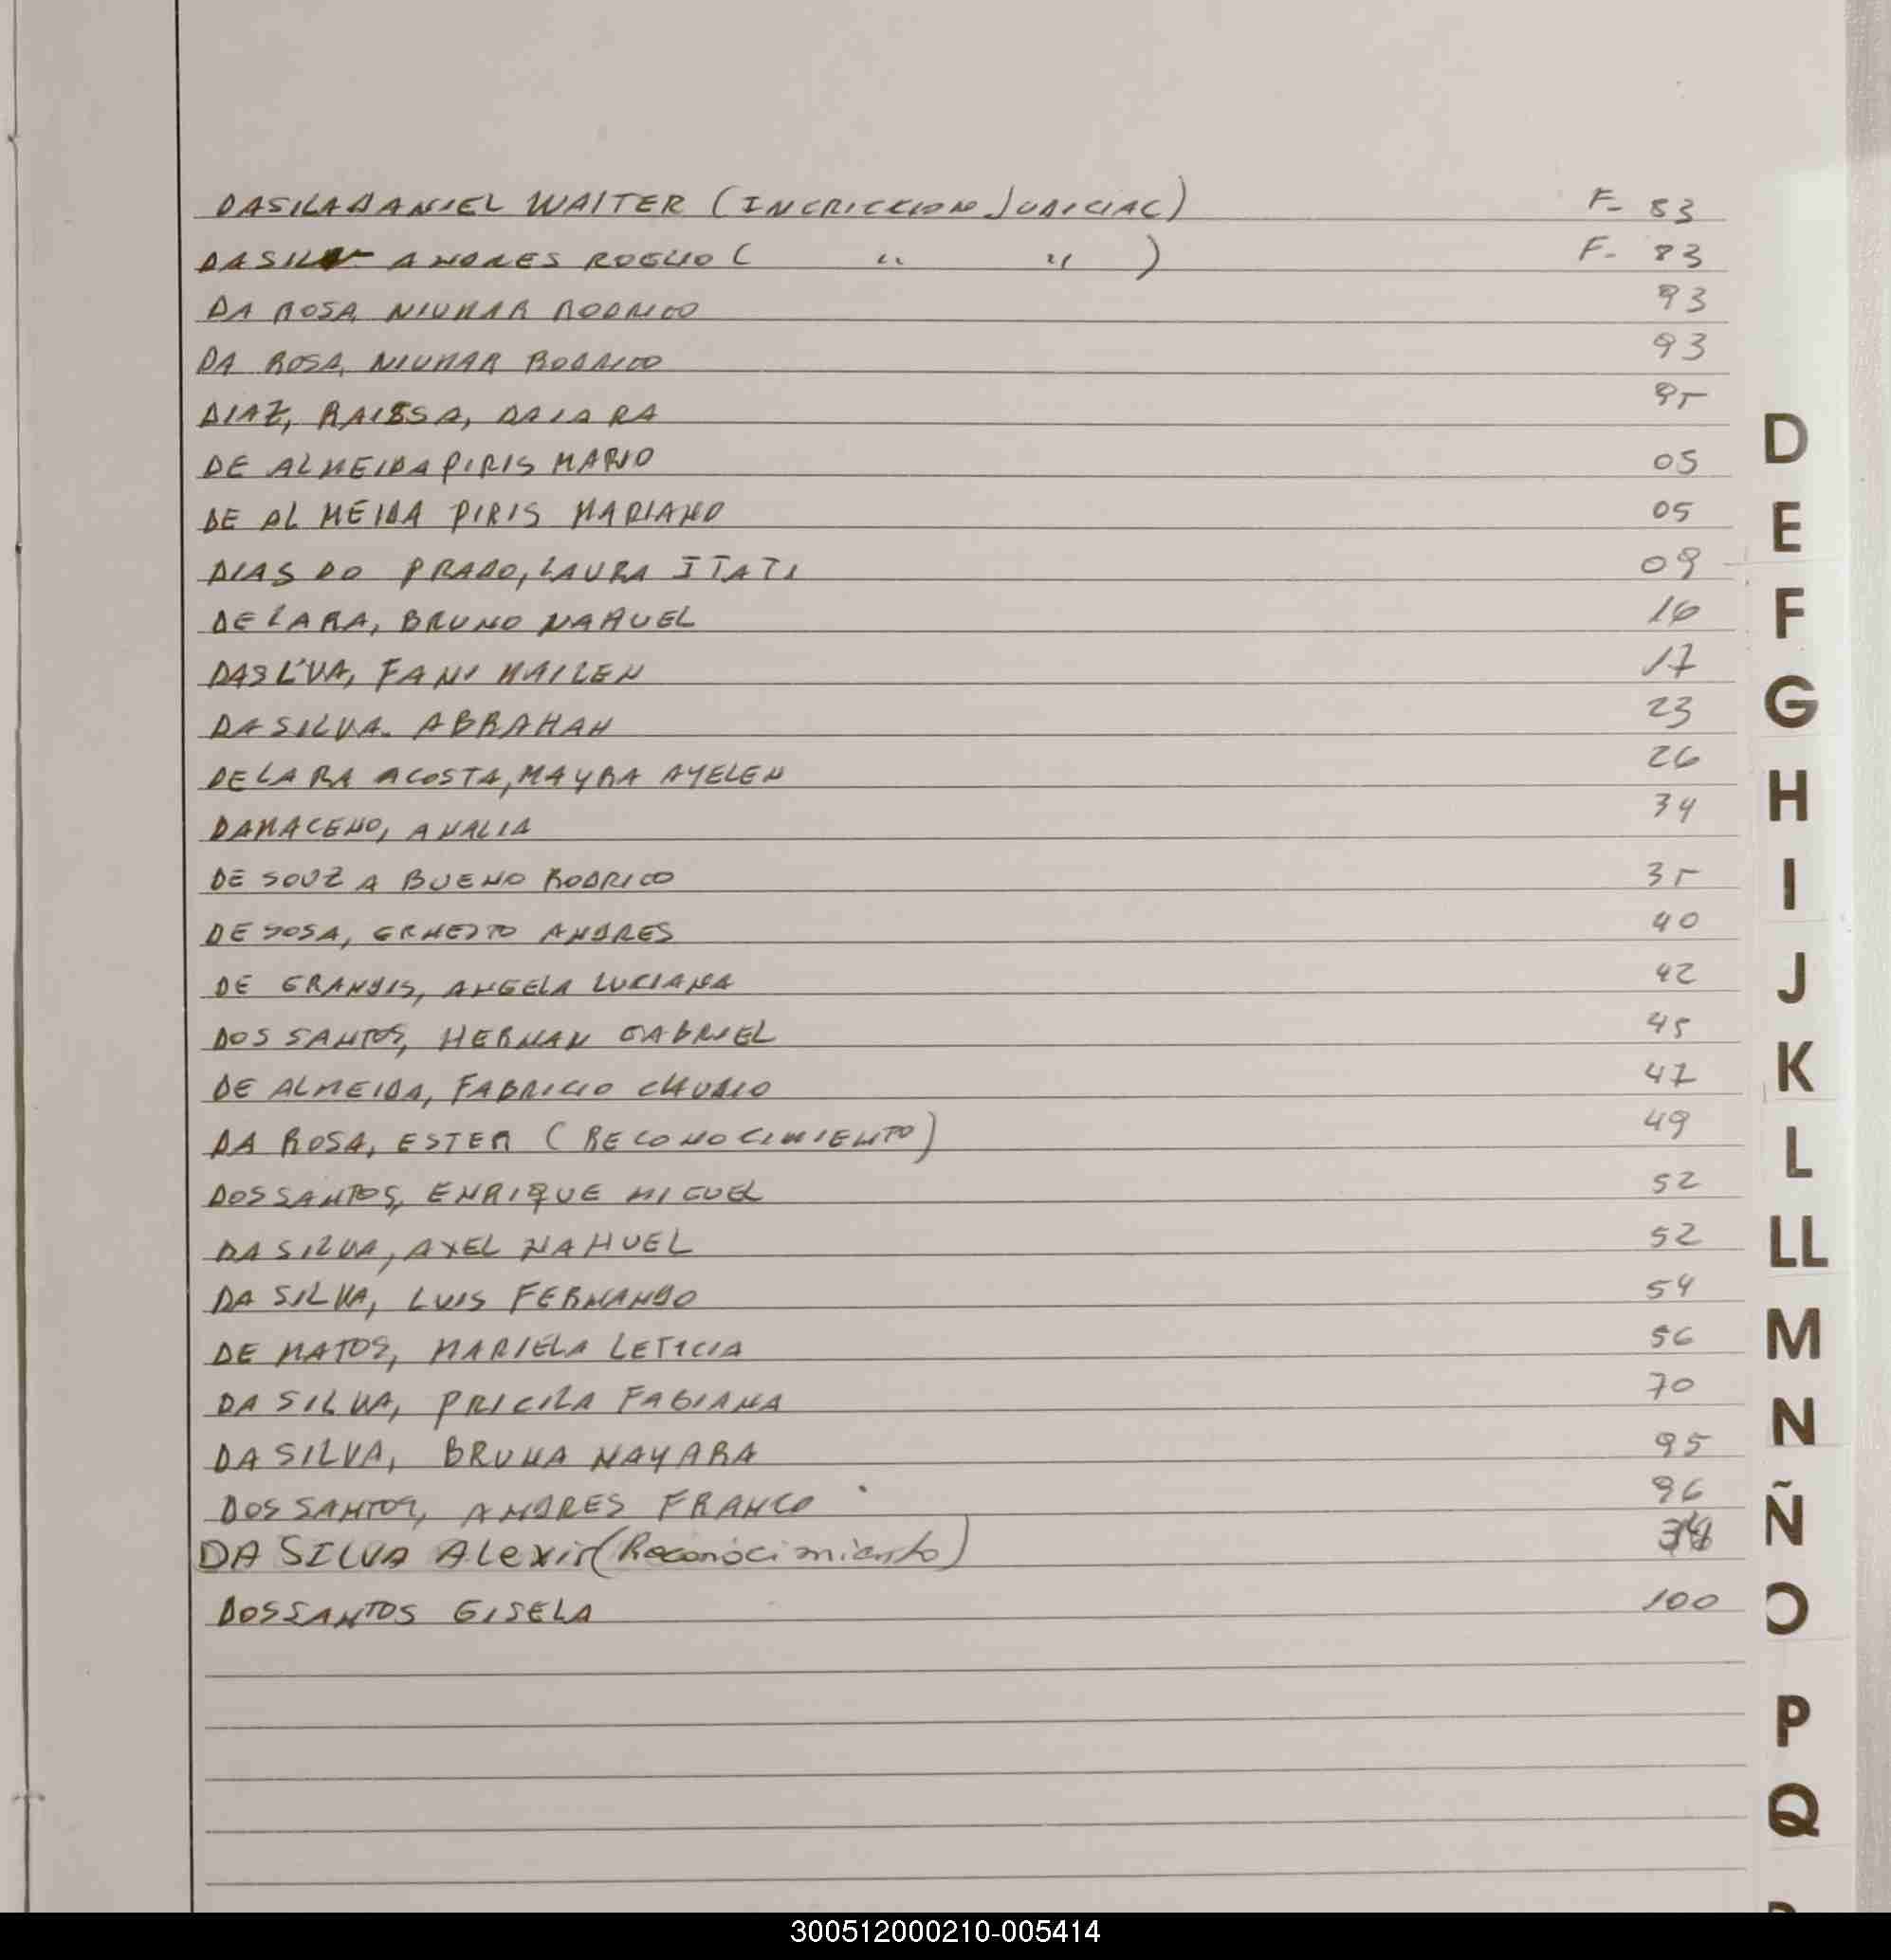 DASILADANIEL WALTER (INCRICCION JUDICIAL) F- 83
DASILV ANDRES ROGLIO ( " " ) F- 83
DA ROSA NIUMAR RODRIGO 93
DA ROSA, NIUMAR RODRIGO 93
DIAZ, RAISSA, DAIARA 95
DE ALMEIDA PIRIS MARIO 05
DE ALMEIDA PIRIS MARIANO 05
DIAS DO PRADO, LAURA ITATI 09
DE LARA, BRUNO NAHUEL 16
DASILVA, FANI MAILEN 17
DA SILVA. ABRAHAM 23
DE LARA ACOSTA, MAYRA AYELEN 26
DAMACENO, ANALIA 34
DE SOUZA BUENO RODRIGO 35
DE SOSA, ERNESTO ANDRES 40
DE GRANDIS, ANGELA LUCIANA 42
DOS SANTOS, HERNAN GABRIEL 45
DE ALMEIDA, FABRICIO 47
DA ROSA, ESTER (RECONOCIMIENTO) 49
DOS SANTOS, ENRIQUE MIGUEL 52
DA SILVA, AXEL NAHUEL 52
DA SILVA, LUIS FERNANDO 54
DE MATOS, MARIELA LETICIA 56
DA SILVA, PRICILA FABIANA 70
DA SILVA, BRUNA NAYARA 95
DOS SANTOS, ANDRES FRANCO 96
DA SILVA Alexis (Reconocimiento)
DOS SANTOS GISELA 100
D
E
F
G
H
I
J
K
L
LL
M
N
Ñ
O
P
Q
300512000210-005414